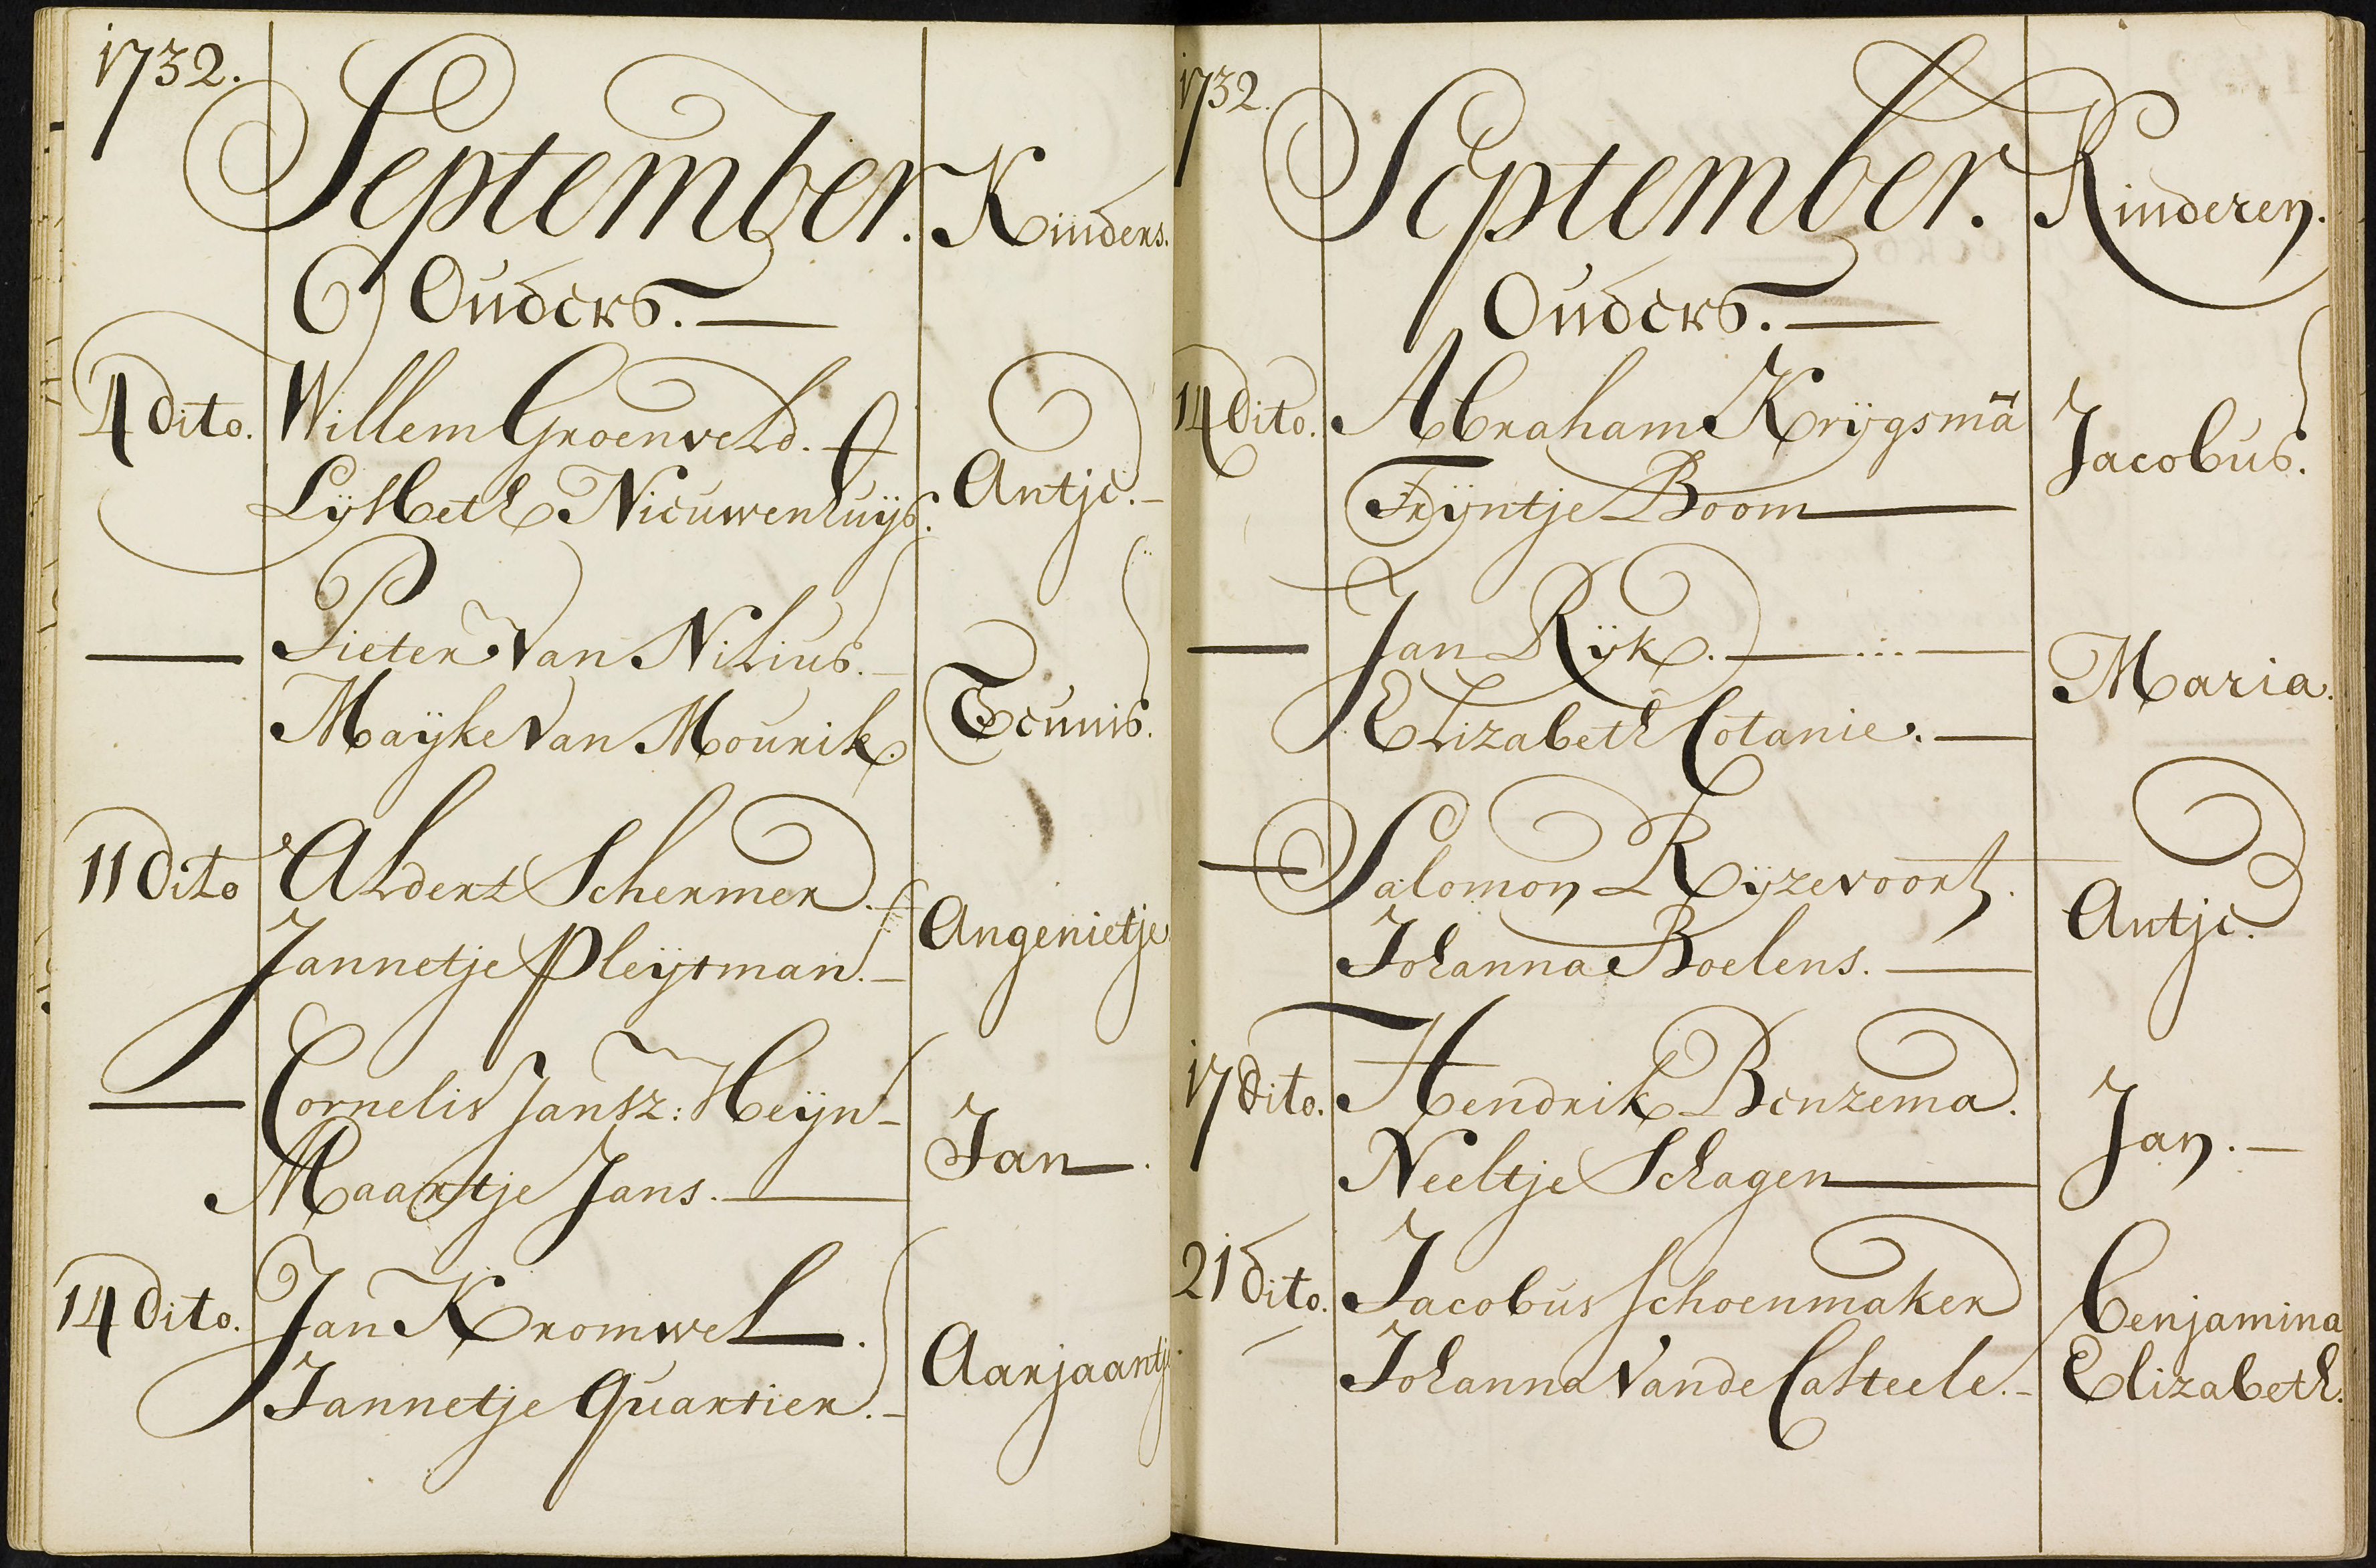 1732.
September. Kinders.
Ouders.
4 dito. Willem Groenveld.
Lijsbeth Nieuwenhuijs. Antje.
Pieter Van Nilius.
Maijke Van Mourik. Teunis.
11 dito Aldert Schermer.
Jannetje Pleijtman. Angenietje
Cornelis Jansz: Heijn
Maartje Jans. Jan.
14 dito. Jan Kromwel.
Jannetje Quartier. Aarjaantje.
1732.
September. Kinderen.
Ouders.
14 dito. Abraham Krijgsmā
Trijntje Boom Jacobus.
Jan Rijk.
Elizabeth Cotanie. Maria.
Salomon Rijzevoort.
Johanna Boelens. Antje.
17 dito. Hendrik Benzema.
Neeltje Schagen Jan.
21 dito. Jacobus Schoenmaker Benjamina
Johanna Vande Casteele. Elizabeth.